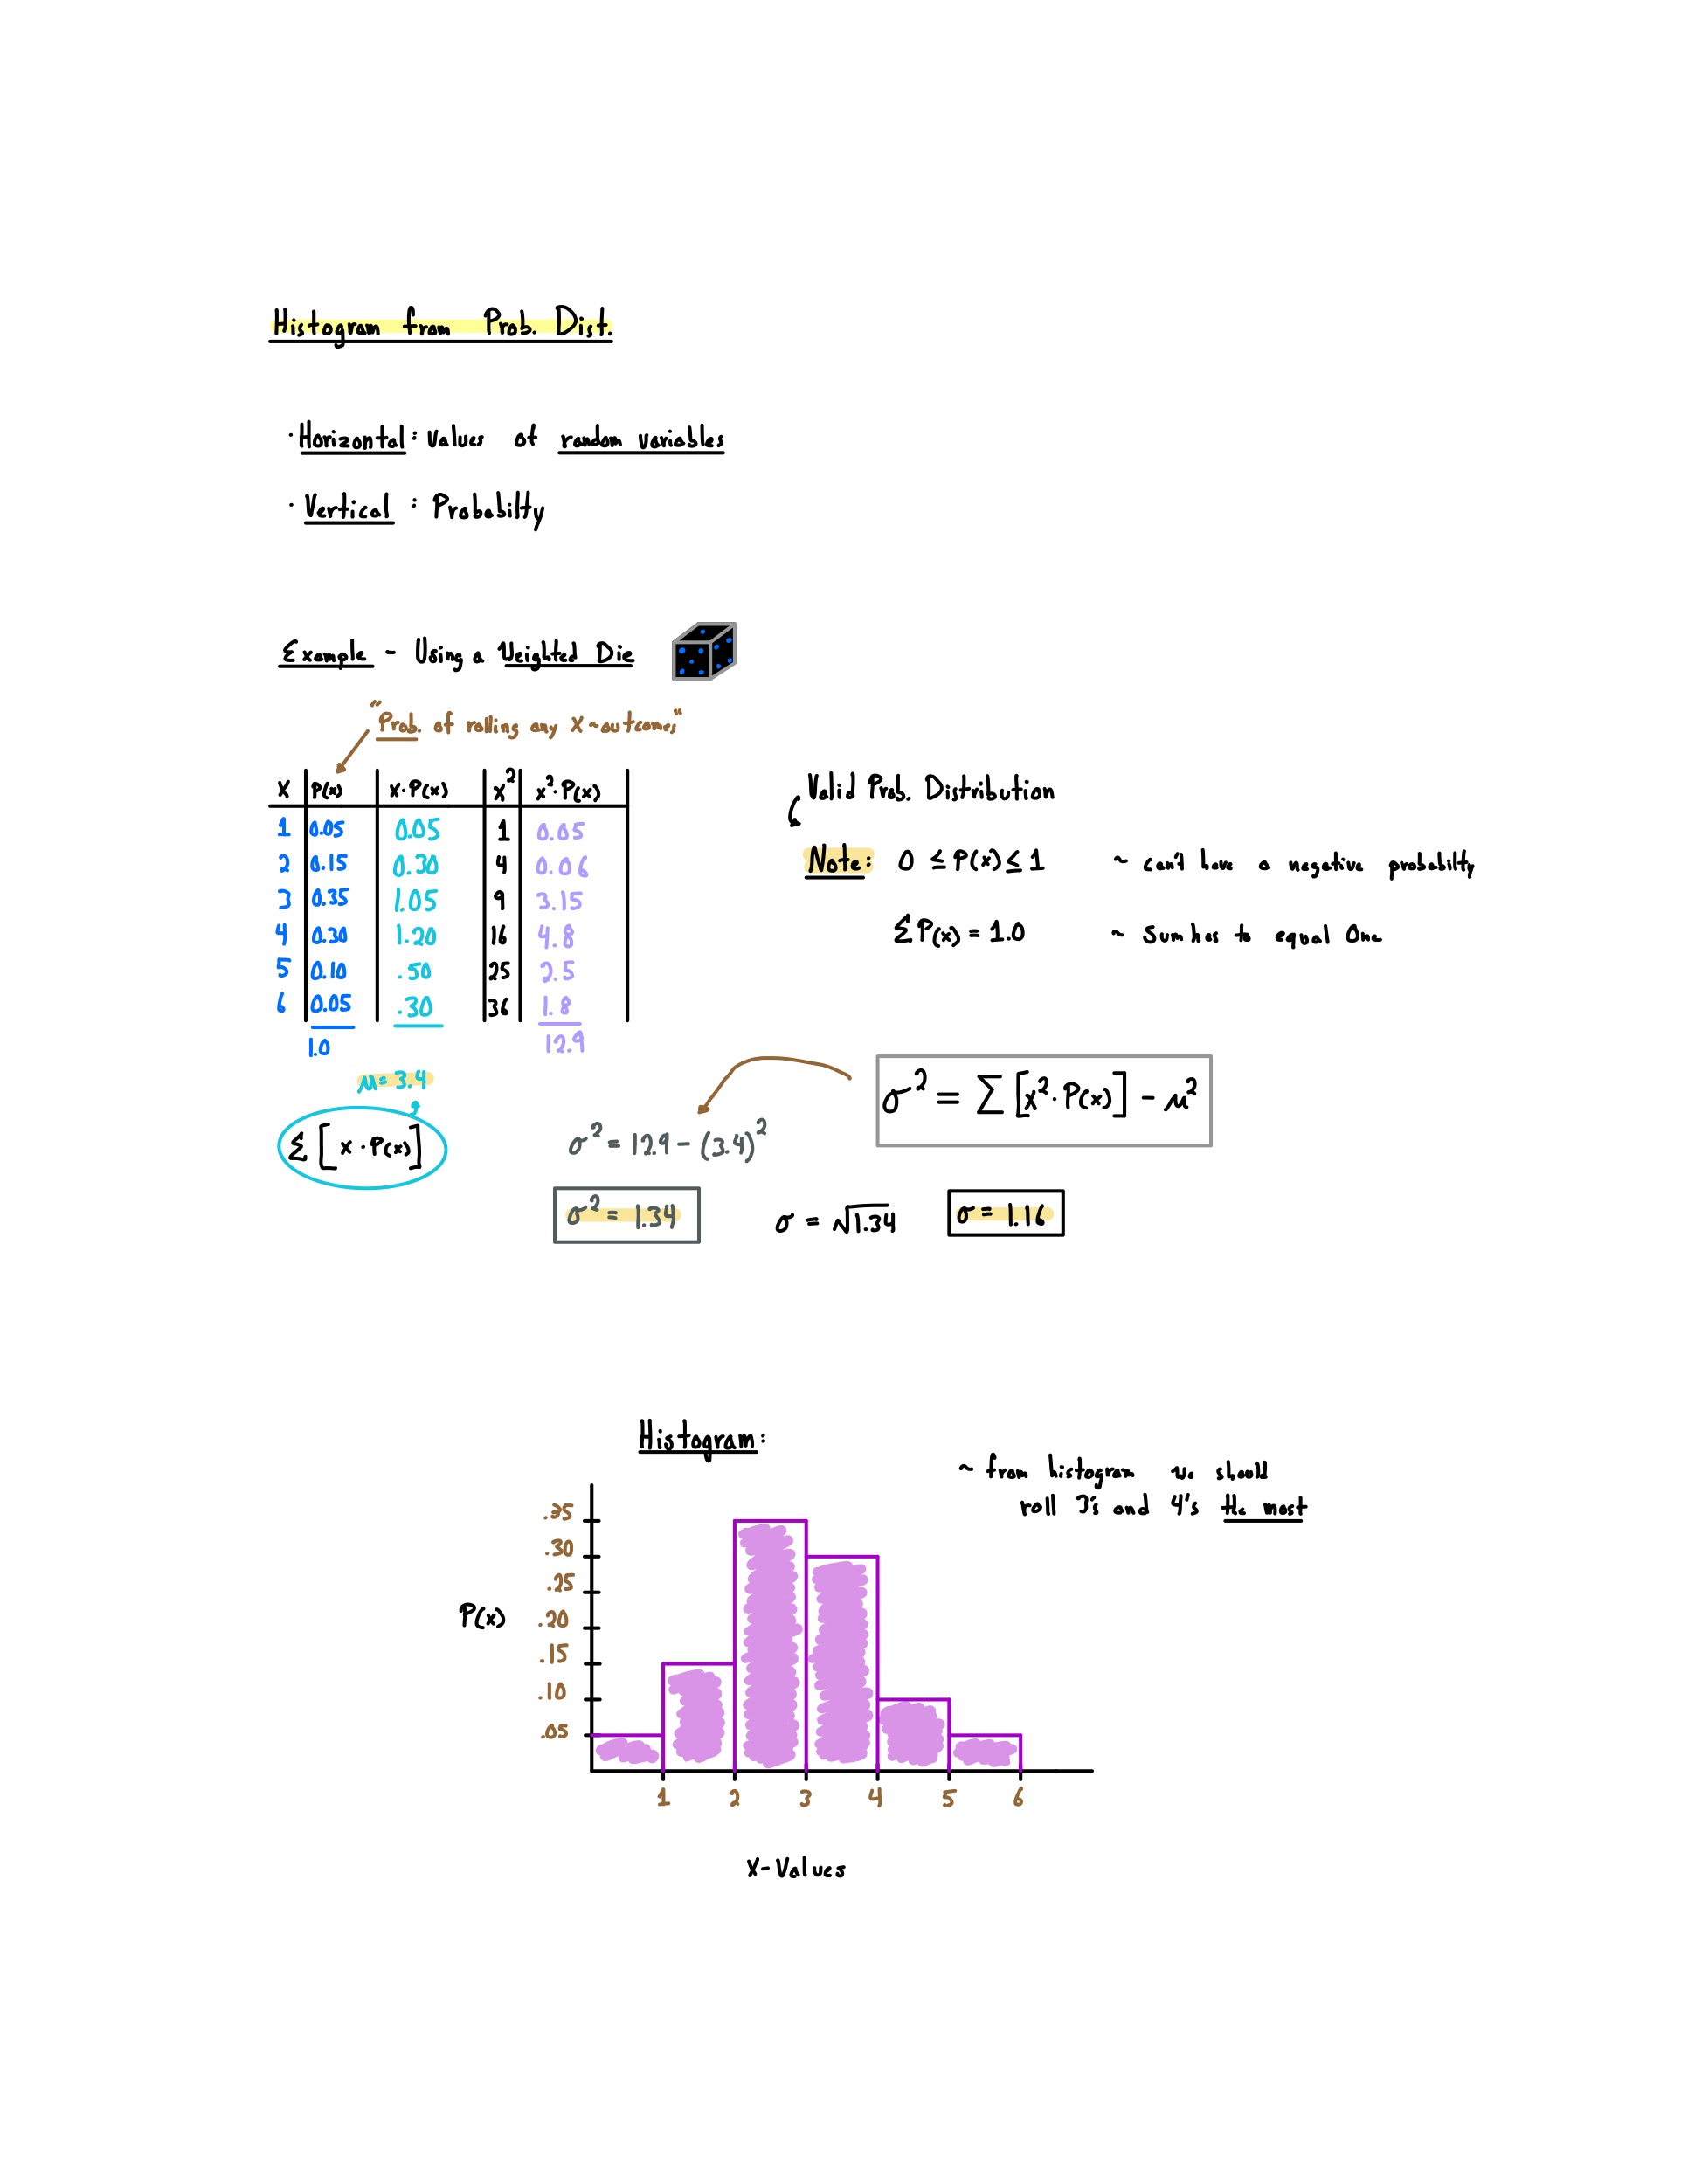 Histogram from Prob. Dist.
· Horizontal: Values of random variables
· Vertical : Probabilty
Example - Using a Weighted Die
"Prob. of rolling any X ~outcomes"
X P(x) X·P(x) X² x²·P(x)
1 0.05 0.05 1 0.05
2 0.15 0.30 4 0.06
3 0.35 1.05 9 3.15
4 0.30 1.20 16 4.8
5 0.10 .50 25 2.5
6 0.05 .30 36 1.8
1.0 12.9
μ = 3.4
Σ [x · P(x)]
Valid Prob. Distribution
Note: 0 ≤ P(x) ≤ 1 ~ can't have a negative probabilty
ΣP(x) = 1.0 ~ Sum has to equal One
σ² = Σ [x² · P(x)] - μ²
σ² = 12.9 - (3.4)²
σ² = 1.34 σ = √1.34 σ = 1.16
Histogram:
~ from histogram we should
roll 3's and 4's the most
.35
.30
.25
.20
P(x)
.15
.10
.05
1 2 3 4 5 6
X-Values